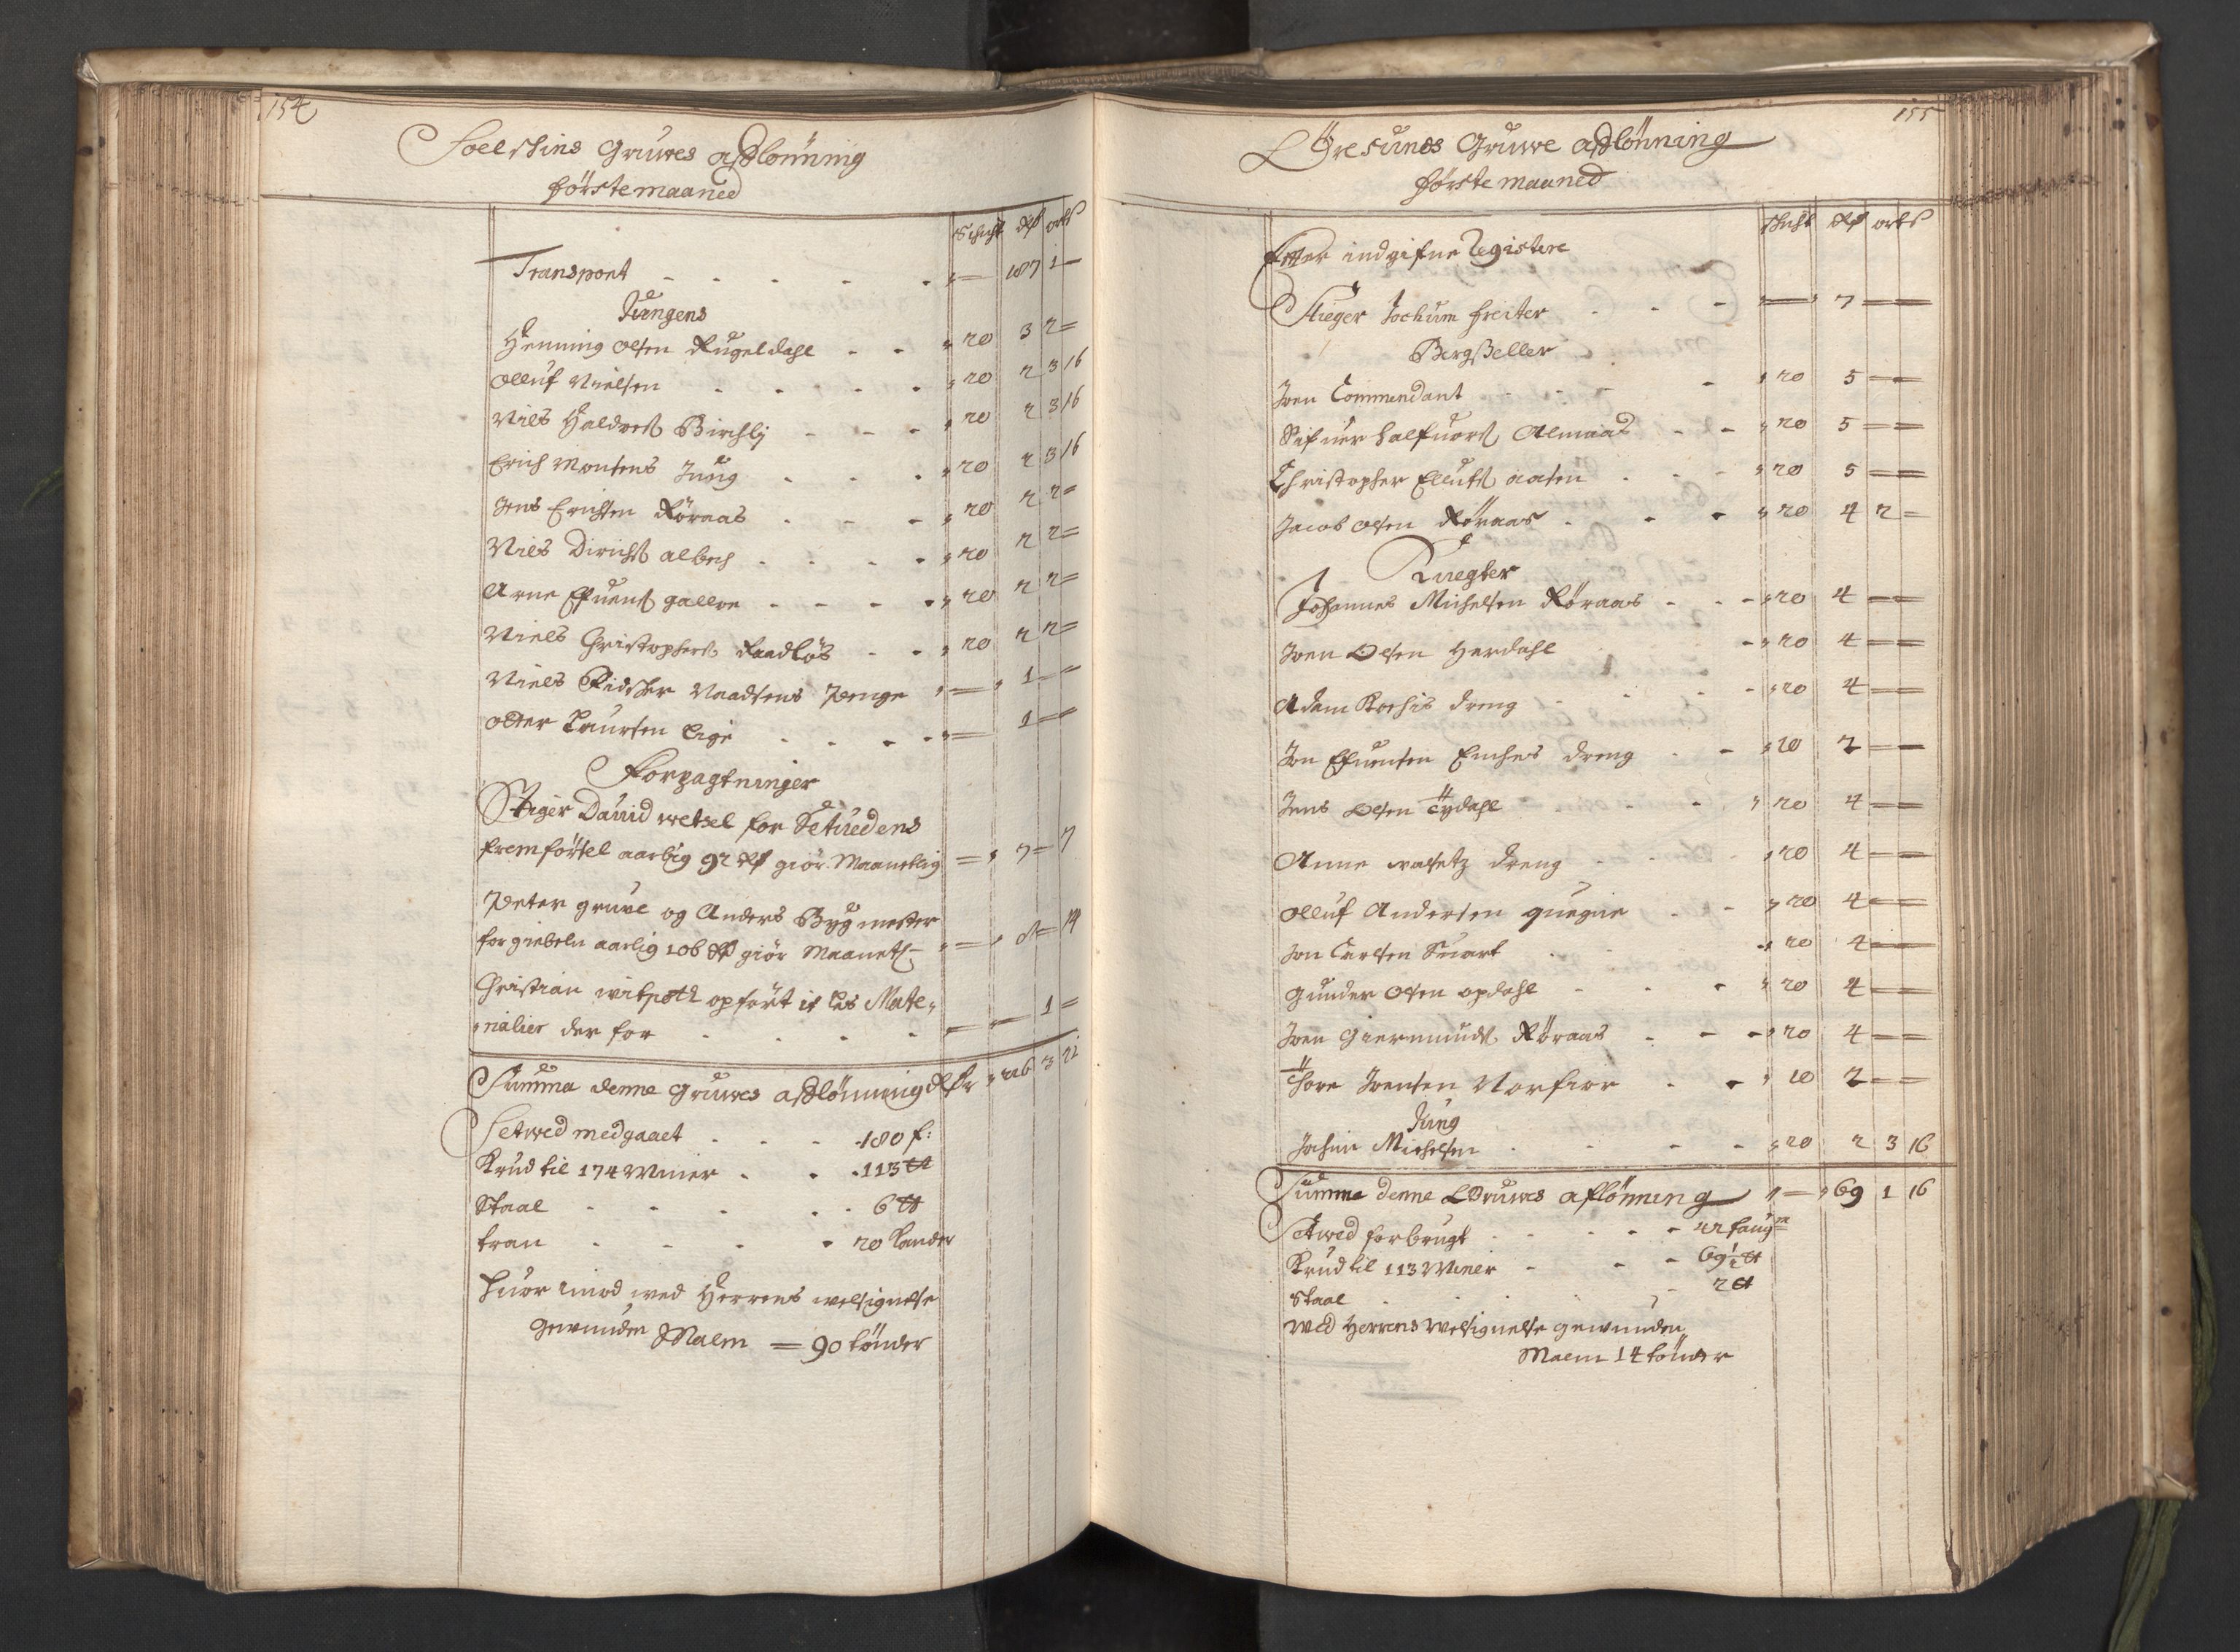 154
Soelskins Gruwes aflönning
förste maaned
Schicht Rdr ort ß
Transport - - - - - 187 1 -
Jungens
Henning Olsen Rugeldahl - - 20 3 2 =
Olluf Nielsen - - - - 20 2 3 16
Niels Haldors Birchly - - - 20 2 3 16
Erich Monsens Jung - - - 20 2 3 16
Jens Erichsen Röraas - - - 20 2 2 =
Niels Dirichs albech - - - - 20 2 2 =
Arne Efuens galloe - - - - 20 2 2 =
Niels Christophers Raadlös - - 20 2 2 =
Niels Fidsker Naadsens Penge = 1 =
Oder Laursen lige - - - - = 1 =
Forpagtninger
Stiger David wetzel for Setuedens
fremförsel aarlig 92 Rdr giör Maanetlig = 7 = 7
Peter gruve og Anders Bygmester
for giebeln aarlig 106 Rdr giör Maanetl: = 8 = 14
Christian witpoth opfört if las Mate-
rialier der for - - - - 1 =
Summa denne Gruwes aflönning Rdr 226 3 21
Setwed medgaaet - - - 180 f:
Krud til 174 Miner - - 113 ℔
Staal - - - - - 6 ℔
tran - - - - 20 Kander
huor imod wed Herrens welsignelse
gewunden Malm = 90 tönder
155
Öresunds Gruwe aflönning
förste maaned
schicht Rdr ort ß
Efter indgifne Registere
Stieger Jochum freiter - - - = 7 =
Bergheller
Joen Commendant - - - 20 5 =
Sifuer halfuors Almaas - - 20 5 =
Christopher Ellufs aasen - - - 20 5 =
Jacob Olsen Röraas - - - 20 4 2 =
Knegter
Johannes Michelsen Röraas - - - 20 4 =
Joen Olsen Herdahl - 20 4 =
Adam Kochis dreng - - - 20 4 =
Jon Efuensen Emhes dreng - - 10 2 =
Jens Olsen Tydahl - - 20 4 =
Arne walsetz dreng - - - 20 4 =
Olluf Andersen quegne - - 20 4 =
Jon Carlsen Suart - - 20 4 =
Gunder Olsen opdahl - - - 20 4 =
Joen Giermunds Röraas - - - 20 4 =
Thore Joensen Norfior - - 10 2 =
Jung
Jochim Michelsen - - - - 20 2 3 16
Summa denne Gruwes aflönning = 69 1 16
Setwed forbrugt - - - - 42 faugn
Krud til 113 Miner - - - 69½ ℔
Staal - - - - 2 ℔
Wed Herrens Welsignelse gewunden
Malm 14 tönder